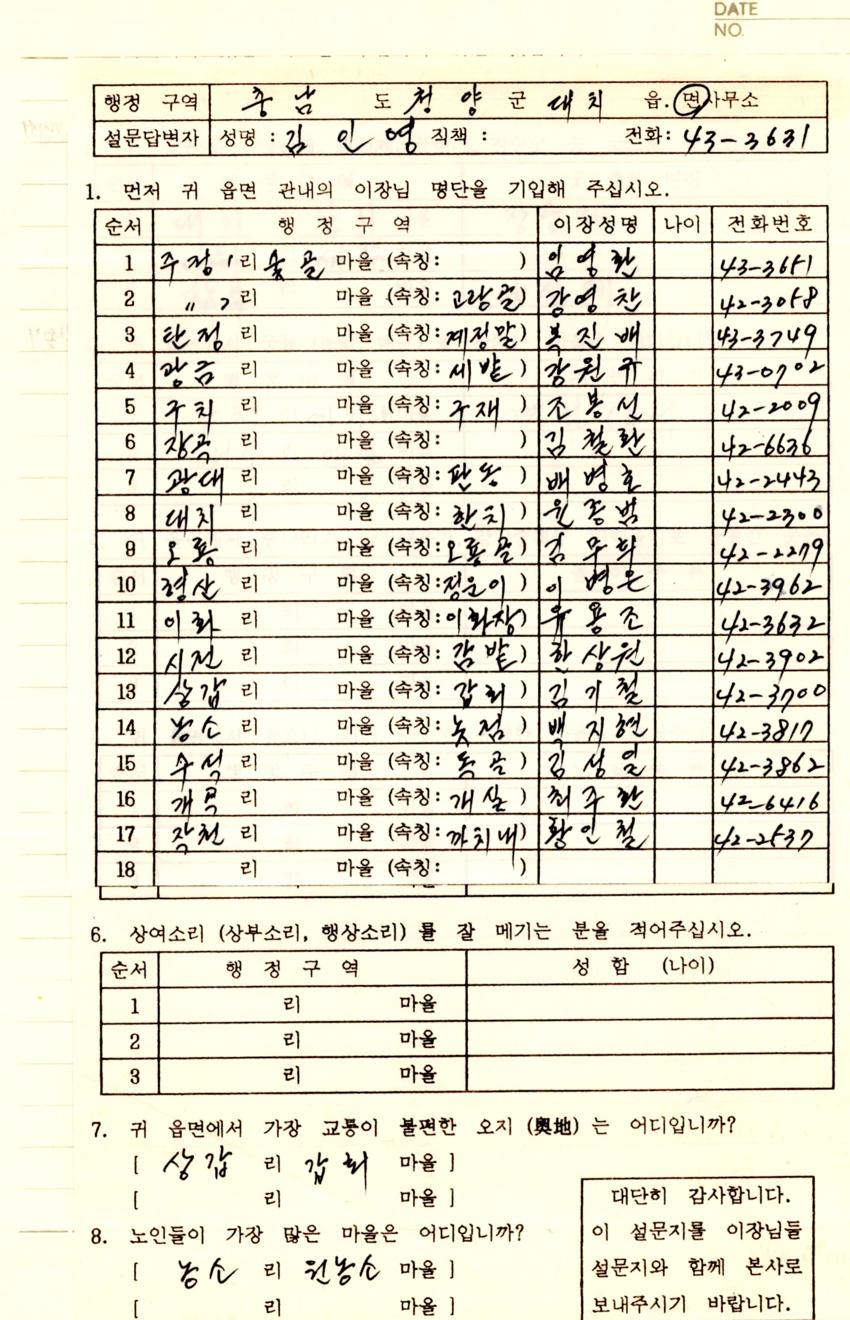 DATE
NO.
행정 구역 충남 도 청양 군 대치 읍. 면사무소
설문답변자 성명 : 김인영 직책 : 전화: 43-3631
1. 먼저 귀 읍면 관내의 이장님 명단을 기입해 주십시오.
순서 행 정 구 역 이장성명 나이 전화번호
1 주정1리 숯골 마을 (속칭: ) 임영환 43-3651
2 〃 2리 마을 (속칭: 고랑골) 강영찬 42-3058
3 탄정 리 마을 (속칭: 계정말) 복진배 43-3749
4 광금 리 마을 (속칭: 세밭 ) 강원규 43-0702
5 구치 리 마을 (속칭: 구재 ) 조봉선 42-2009
6 장곡 리 마을 (속칭: ) 김철환 42-6636
7 광대 리 마을 (속칭: 판농 ) 배병호 42-2443
8 대치 리 마을 (속칭: 한치 ) 윤종범 42-2300
9 오룡 리 마을 (속칭: 오룡골 ) 김무회 42-2279
10 형산 리 마을 (속칭: 정운이 ) 이병은 42-3962
11 이화 리 마을 (속칭: 이화장) 유용조 42-3632
12 시전 리 마을 (속칭: 감밭 ) 한상원 42-3902
13 상갑 리 마을 (속칭: 갑회 ) 김기철 42-3700
14 농소 리 마을 (속칭: 놋점 ) 백지현 42-3817
15 수석 리 마을 (속칭: 독골 ) 김성일 42-3862
16 개곡 리 마을 (속칭: 개실 ) 최주환 42-6416
17 작천 리 마을 (속칭: 까치내) 황인철 42-2537
18 리 마을 (속칭: )
6. 상여소리 (상부소리, 행상소리) 를 잘 메기는 분을 적어주십시오.
순서 행 정 구 역 성 함 (나이)
1 리 마을
2 리 마을
3 리 마을
7. 귀 읍면에서 가장 교통이 불편한 오지 (奧地) 는 어디입니까?
[ 상갑 리 갑회 마을 ]
[ 리 마을 ]
8. 노인들이 가장 많은 마을은 어디입니까?
[ 농소 리 원농소 마을 ]
[ 리 마을 ]
대단히 감사합니다.
이 설문지를 이장님들
설문지와 함께 본사로
보내주시기 바랍니다.